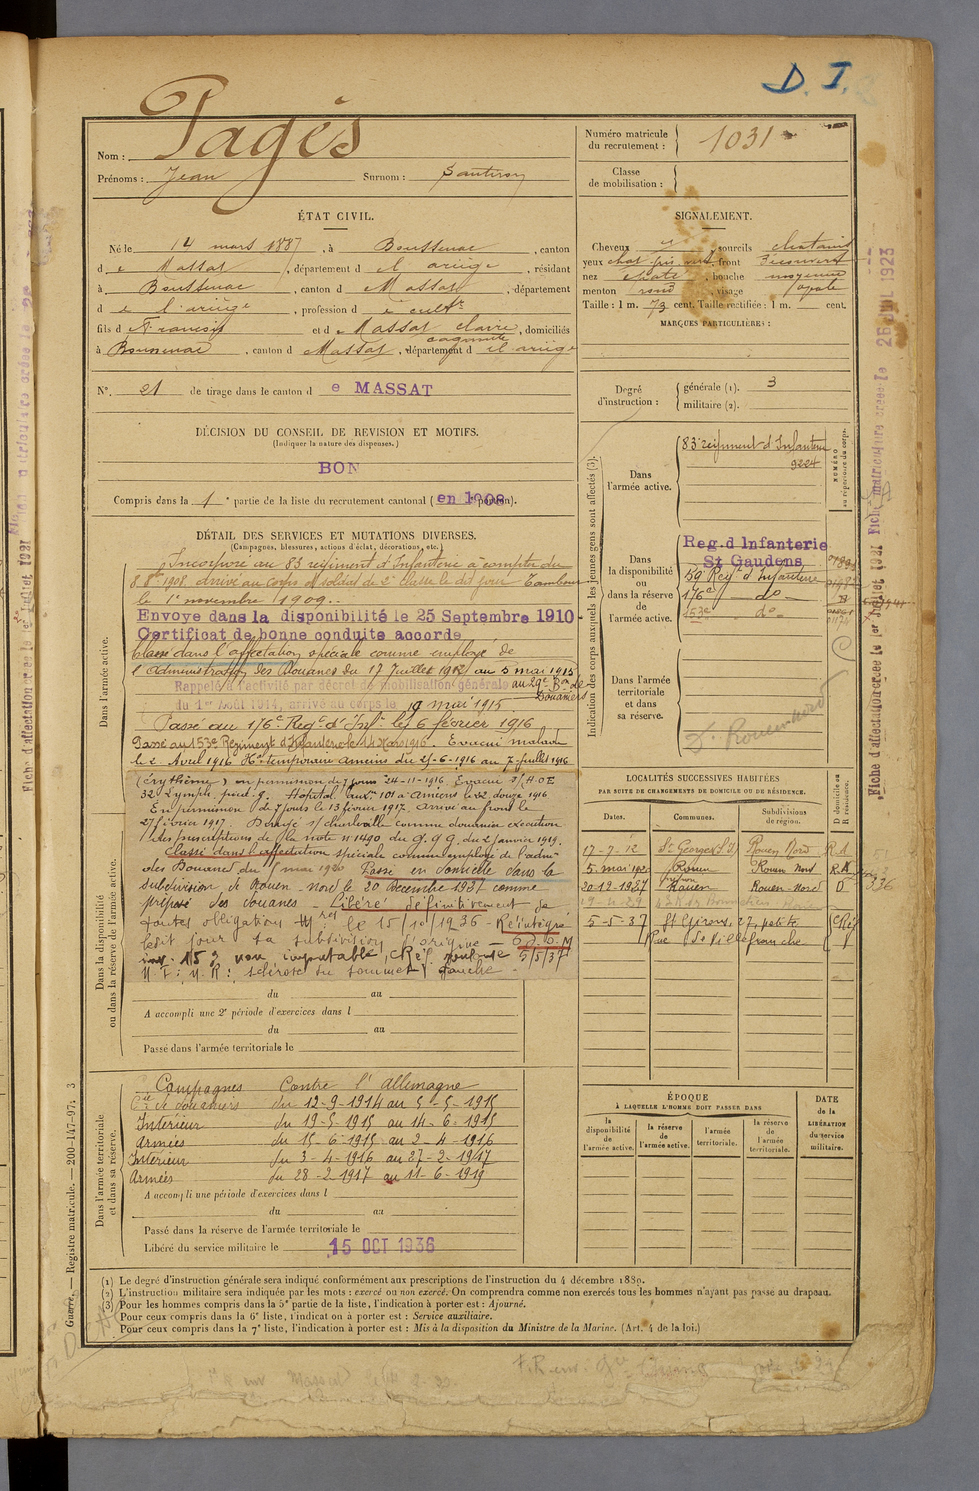 D. I.
Nom : Pagès
Prénoms : Jean Surnom :
Numéro matricule du recrutement : 1031
Classe de mobilisation :
ÉTAT CIVIL.
Né le 14 mars 1887, à Boussenac, canton
de Massat, département de l'ariège, résidant
à Boussenac, canton de Massat, département
de l'ariège, profession de cultr
fils de François et de Massat Claire, domiciliés
à Boussenac, canton de Massat, département de l'ariège
SIGNALEMENT.
Cheveux , sourcils chatains
yeux front découvert
nez , bouche moyenne
menton rond visage
Taille : 1 m. 73 cent. Taille rectifiée : 1 m. cent.
MARQUES PARTICULIÈRES :
N° 21 de tirage dans le canton de MASSAT
Degré d'instruction : générale (1). 3
militaire (2).
DÉCISION DU CONSEIL DE REVISION ET MOTIFS.
(Indiquer la nature des dispenses.)
BON
Compris dans la 1e partie de la liste du recrutement cantonal (en 1908 portion).
DÉTAIL DES SERVICES ET MUTATIONS DIVERSES.
(Campagnes, blessures, actions d'éclat, décorations, etc.)
Incorporé au 83 régiment d'Infanterie à compter du
8 8bre 1908, arrivé au corps et soldat de 2e classe le dit jour Tambour
le 1er novembre 1909.
Envoye dans la disponibilité le 25 Septembre 1910
Certificat de bonne conduite accorde
Classé dans l'affectation spéciale comme employé de
l'Administration des Douanes du 17 Juillet 1912 au 5 mai 1915
Rappelé à l'activité par décret de mobilisation générale au 29e Bon de Douaniers
du 1er Août 1914, arrivé au corps le 19 mai 1915
Passé au 176e Regt d'Infie le 6 février 1916
Passé au 153e Régiment d'Infanterie le 14 Mars 1916. Evacué malade
le 2 Avril 1916 Hal temporaire Amiens du 25-6-1916 au 7 juillet 1916
(érythème) en permission de 7 jours 24-11-1916. Evacué s/ H.O.E
32 Hôpital auxre 101 à Amiens le 22 1916
En permission de 7 jours le 13 février 1917. Arrivé au front le
27 février 1917. s/ Charleville comme douanier exécution
des prescriptions de la note n° 1490 du G.Q.G. du 2 janvier 1919.
Classé dans l'affectation spéciale comme employé de l'adon
des Douanes du 5 mai 1920 Passe en domicile dans la
subdivision de Rouen-nord le 30 Décembre 1927 comme
préposé des douanes - Libéré définitivement de
toutes obligations le 15/10/1936 - Réintégré
ledit jour sa subdivision d'origine
non imputable, 5/5/37
sclérose du sommet gauche
du au
A accompli une 2e période d'exercices dans l
du au
Passé dans l'armée territoriale le
Campagnes Contre l'Allemagne
Cie de douaniers du 12-9-1914 au 5-5-1915
Intérieur du 19-5-1915 au 14-6-1915
Armées du 15-6-1915 au 2-4-1916
Intérieur du 3-4-1916 au 27-2-1917
Armées du 28-2-1917 au 11-6-1919
A accompli une période d'exercices dans l
du au
Passé dans la réserve de l'armée territoriale le
Libéré du service militaire le 15 OCT 1936
Dans l'armée active.
Dans la disponibilité ou dans la réserve de l'armée active.
Dans l'armée territoriale et dans sa réserve.
Indication des corps auxquels les jeunes gens sont affectés (3).
Dans l'armée active. 83e régiment d'Infanterie
9224
NUMÉRO au répertoire du corps.
Dans la disponibilité ou dans la réserve de l'armée active.
Reg. d Infanterie
St Gaudens
59 Regt d'Infanterie
176e do
153e do
Dans l'armée territoriale et dans sa réserve.
Rouen nord
LOCALITÉS SUCCESSIVES HABITÉES
PAR SUITE DE CHANGEMENTS DE DOMICILE OU DE RÉSIDENCE.
Dates. Communes. Subdivisions de région. D domicile ou R résidence.
17-7-12 St Georges Rouen Nord R.A
5 mai 1920 Rouen Rouen Nord R.A
20-12-1927 Rouen Rouen-Nord D
19-4-29
5-5-37 St Girons, 27, petite
Rue Villefranche
ÉPOQUE
À LAQUELLE L'HOMME DOIT PASSER DANS
la disponibilité de l'armée active. la réserve de l'armée active. l'armée territoriale. la réserve de l'armée territoriale.
DATE de la LIBÉRATION du service militaire.
(1) Le degré d'instruction générale sera indiqué conformément aux prescriptions de l'instruction du 4 décembre 1889.
(2) L'instruction militaire sera indiquée par les mots : exercé ou non exercé. On comprendra comme non exercés tous les hommes n'ayant pas passé au drapeau.
(3) Pour les hommes compris dans la 5e partie de la liste, l'indication à porter est : Ajourné.
Pour ceux compris dans la 6e liste, l'indication à porter est : Service auxiliaire.
Pour ceux compris dans la 7e liste, l'indication à porter est : Mis à la disposition du Ministre de la Marine. (Art. 4 de la loi.)
Guerre. — Registre matricule. — 200-147-97. 3
Fiche matriculaire créée le 26 JUIL 1923
Fiche d'affectation créée le 1er Juillet 1921